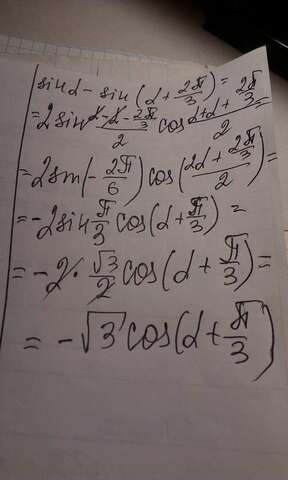 sin α - sin (α + 2π/3) =
= 2 sin (α - α - 2π/3)/2 cos (α + α + 2π/3)/2 =
= 2 sin (- 2π/6) cos ((2α + 2π/3)/2) =
= -2 sin π/3 cos (α + π/3) =
= -2 · √3/2 cos (α + π/3) =
= -√3 cos (α + π/3)